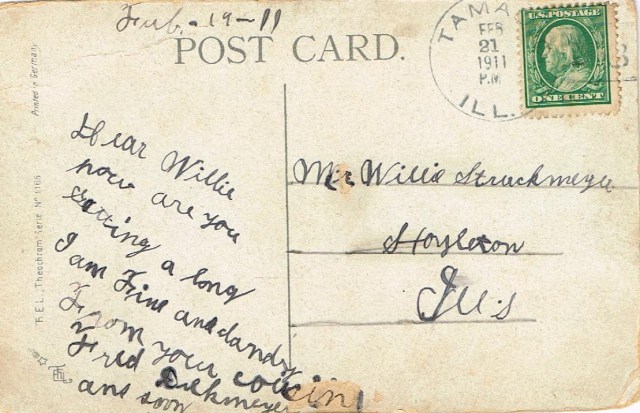 Feb. -19-11
POST CARD.
TAMA
FEB
21
1911
P.M.
ILL.
U.S. POSTAGE
ONE CENT
Printed in Germany
T.H.E.L. „Theochrom" Serie Nº 1166
Dear Willie
how are you
getting a long
I am Fine and dandy
From your cousin
Fred Dickmeyer
ans soon
Mr Willie Struckmeyer
Hoyleton
Ills